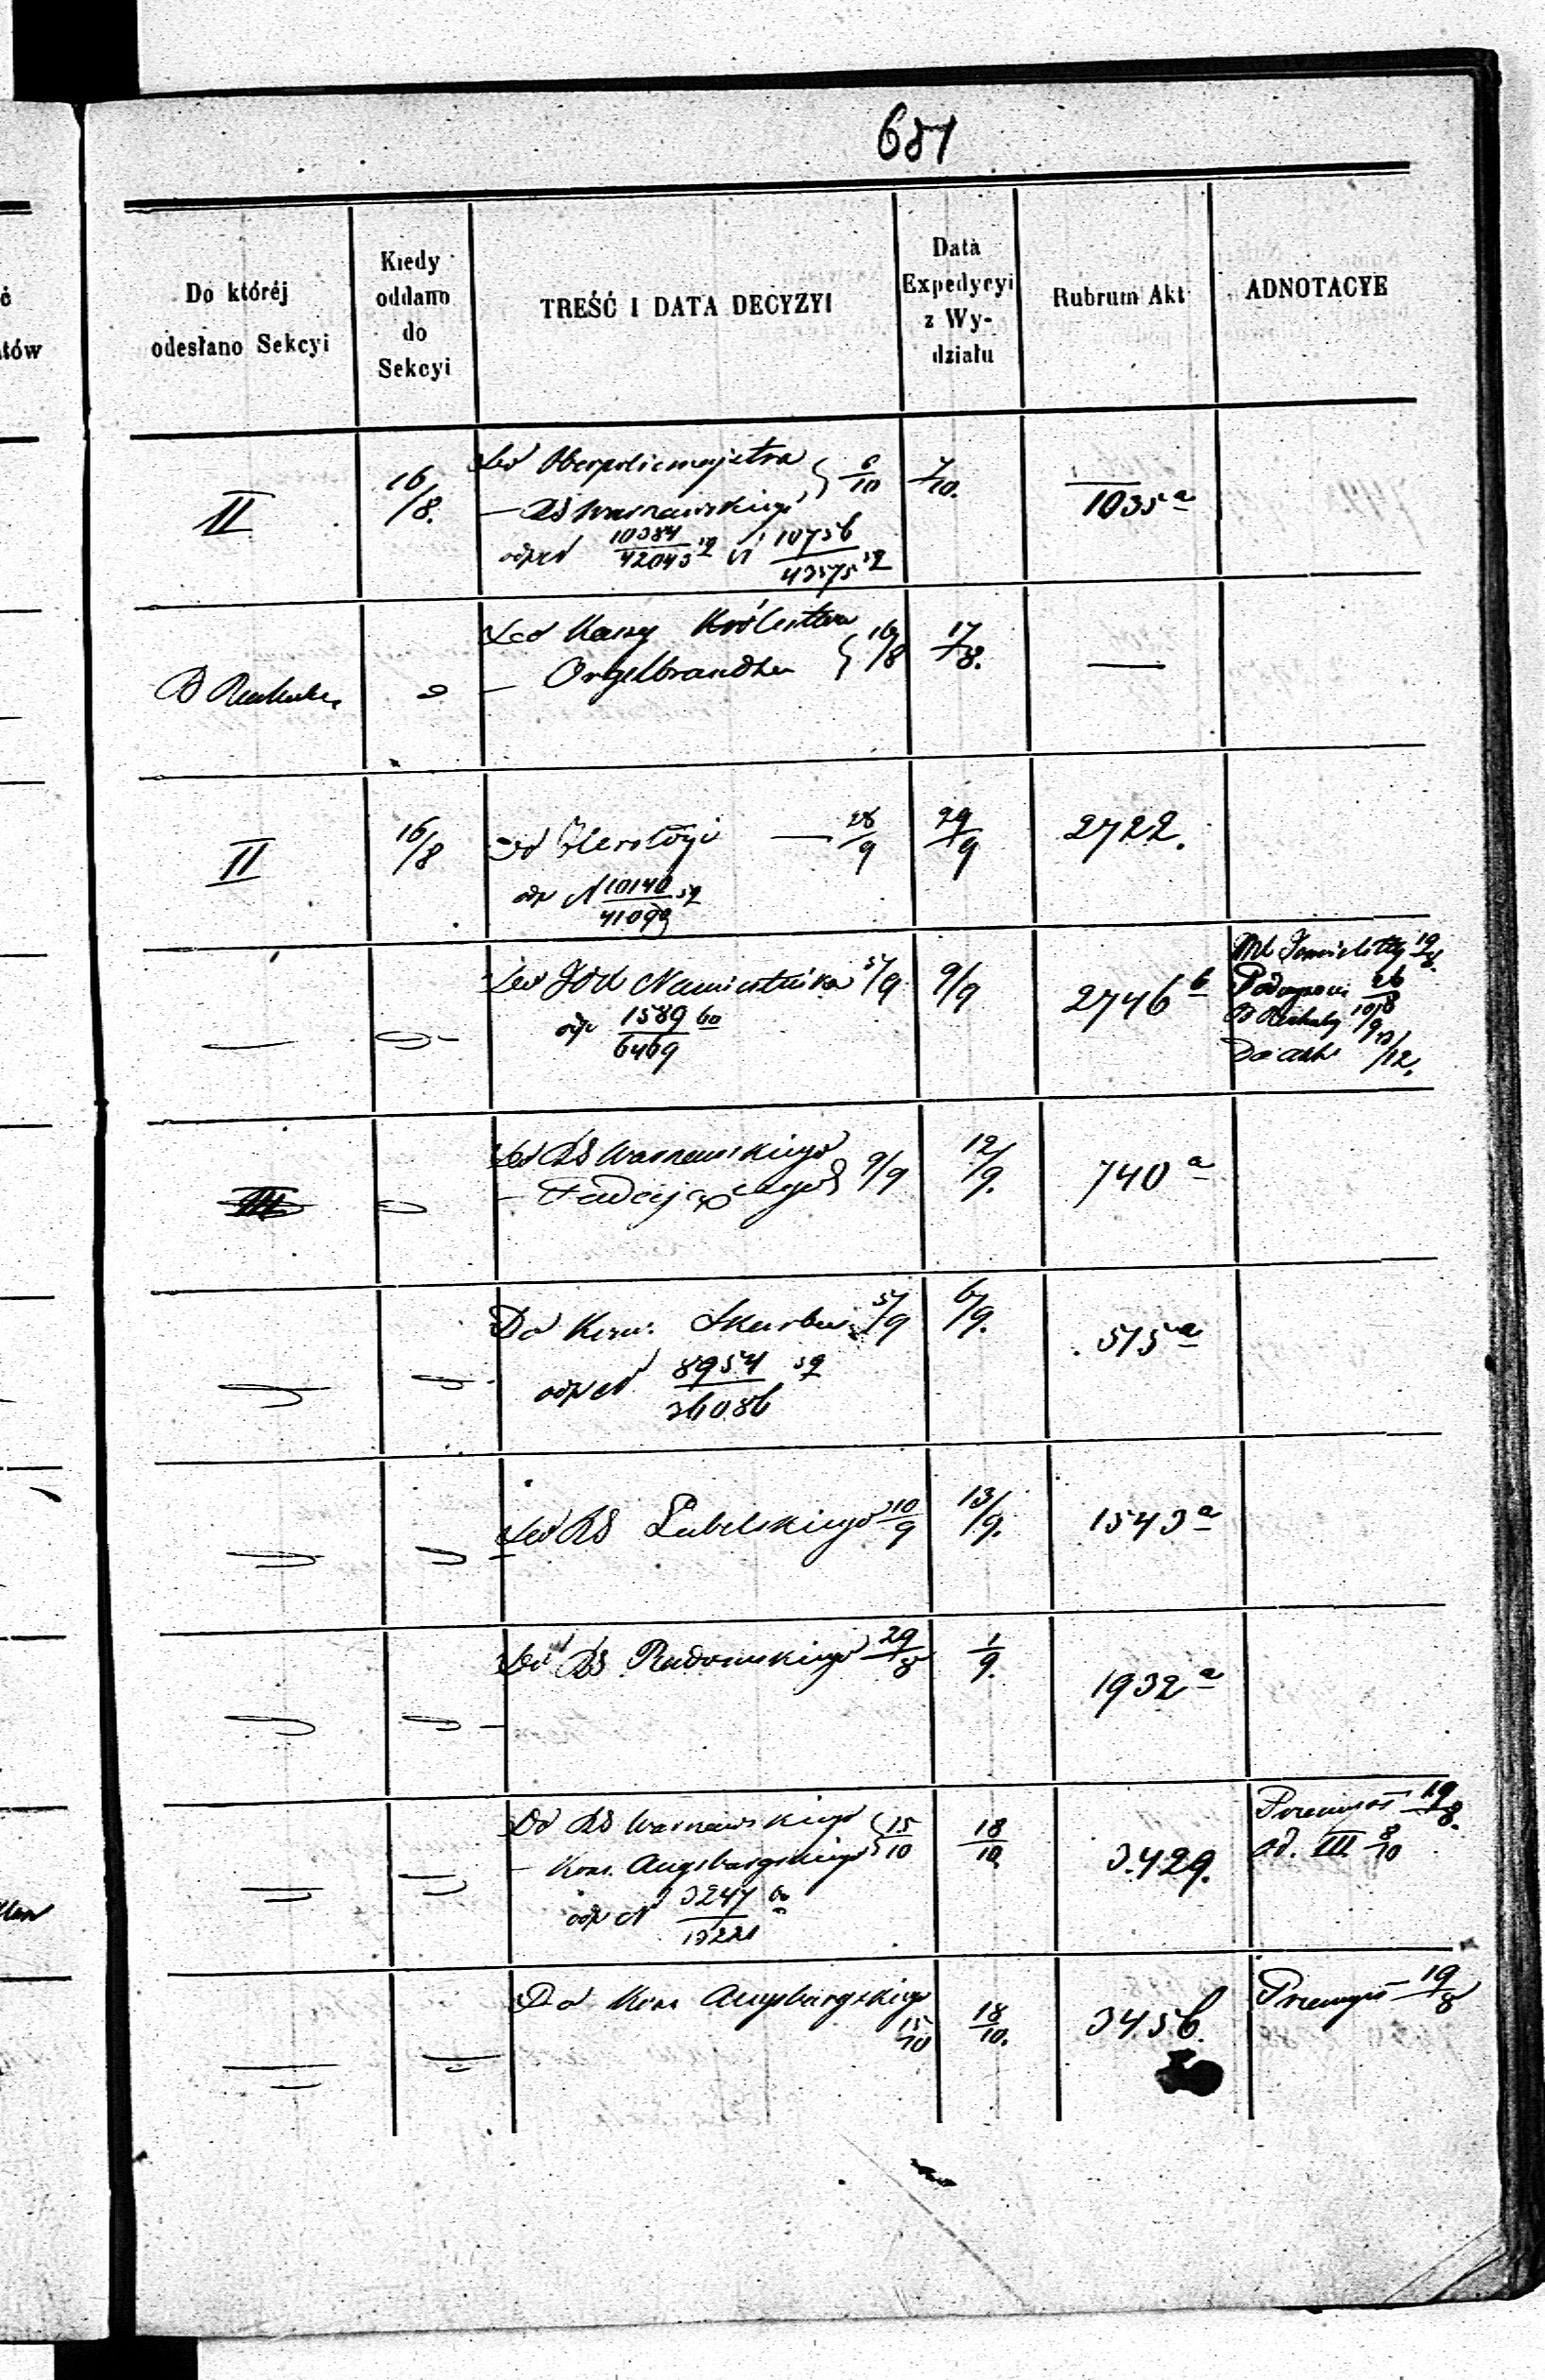 651
Do któréj
odesłano Sekcyi
Kiedy
oddano
do
Sekcyi
TREŚĆ I DATA DECYZYI
Data
Expedycyi
z Wy-
działu
Rubrum Akt
ADNOTACYE
II
16/8.
Do Oberpolicmajstra
— RG Warszawskiego } 6/10
odp N 10384/42043 59 i 10756/43575 59
7/10.
1/1035 a
B Rachuby
Do Kassy Królestwa
— Orgelbranda } 16/8
17/8.
—
II
16/8
Do Heroldyi — 28/9
odp N 10140/41099 59
29/9
2722.
Do JOX Namiestnika 5/9
odp 1589/6469 60
9/9
2746 b
19/8.
26/8
B Rachuby 10/9
Do akt 10/12.
Do RG Warszawskiego
9/9
12/9.
740 a
Do Kom. Skarbu 5/9
odp N 8954/36086 59
6/9.
515 a
Do RG Lubelskiego 10/9
13/9.
1543 a
Do RG Radomskiego 29/8
1/9.
1932 a
Do RG Warszawskiego
— Kons. Augsburgskiego } 15/10
odp N 3247/13221 60
18/10.
3429.
19/8.
od. III 8/10
Do Kons Augsburgskiego
15/10
18/10.
3456.
19/8